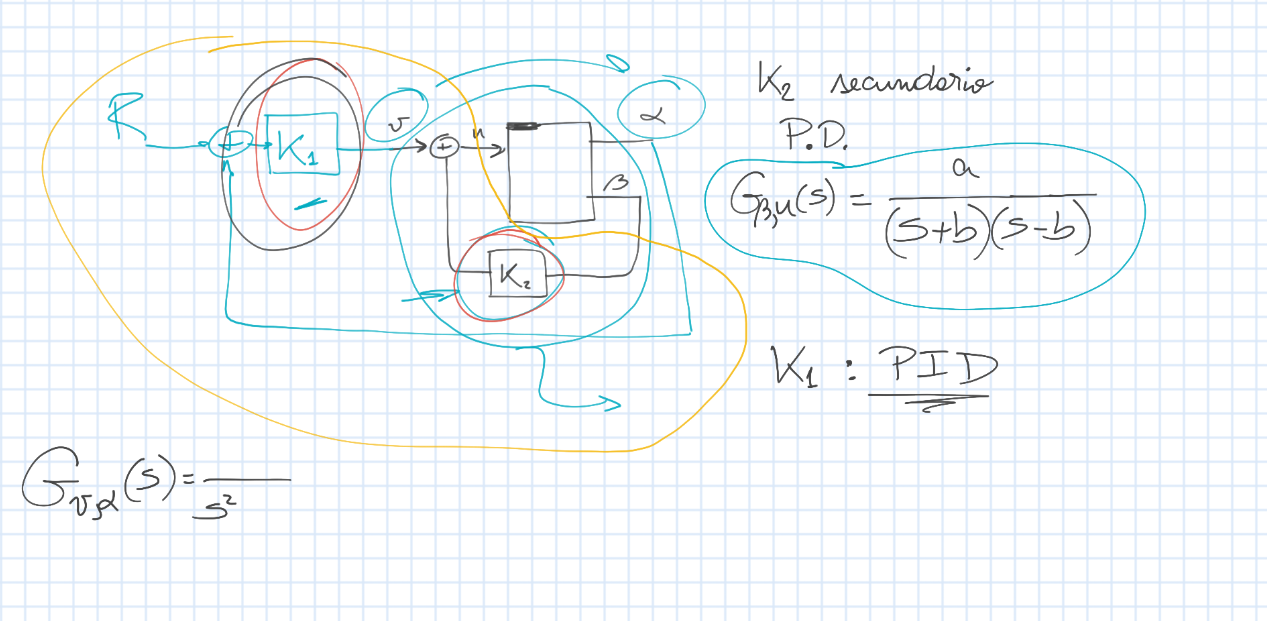 R
+
K₁
v
+
u
α
β
K₂
K₂ secundario
P.D.
G_{β,u}(s) = a / (s+b)(s-b)
K₁ : PID
G_{v,α}(s) = / s²